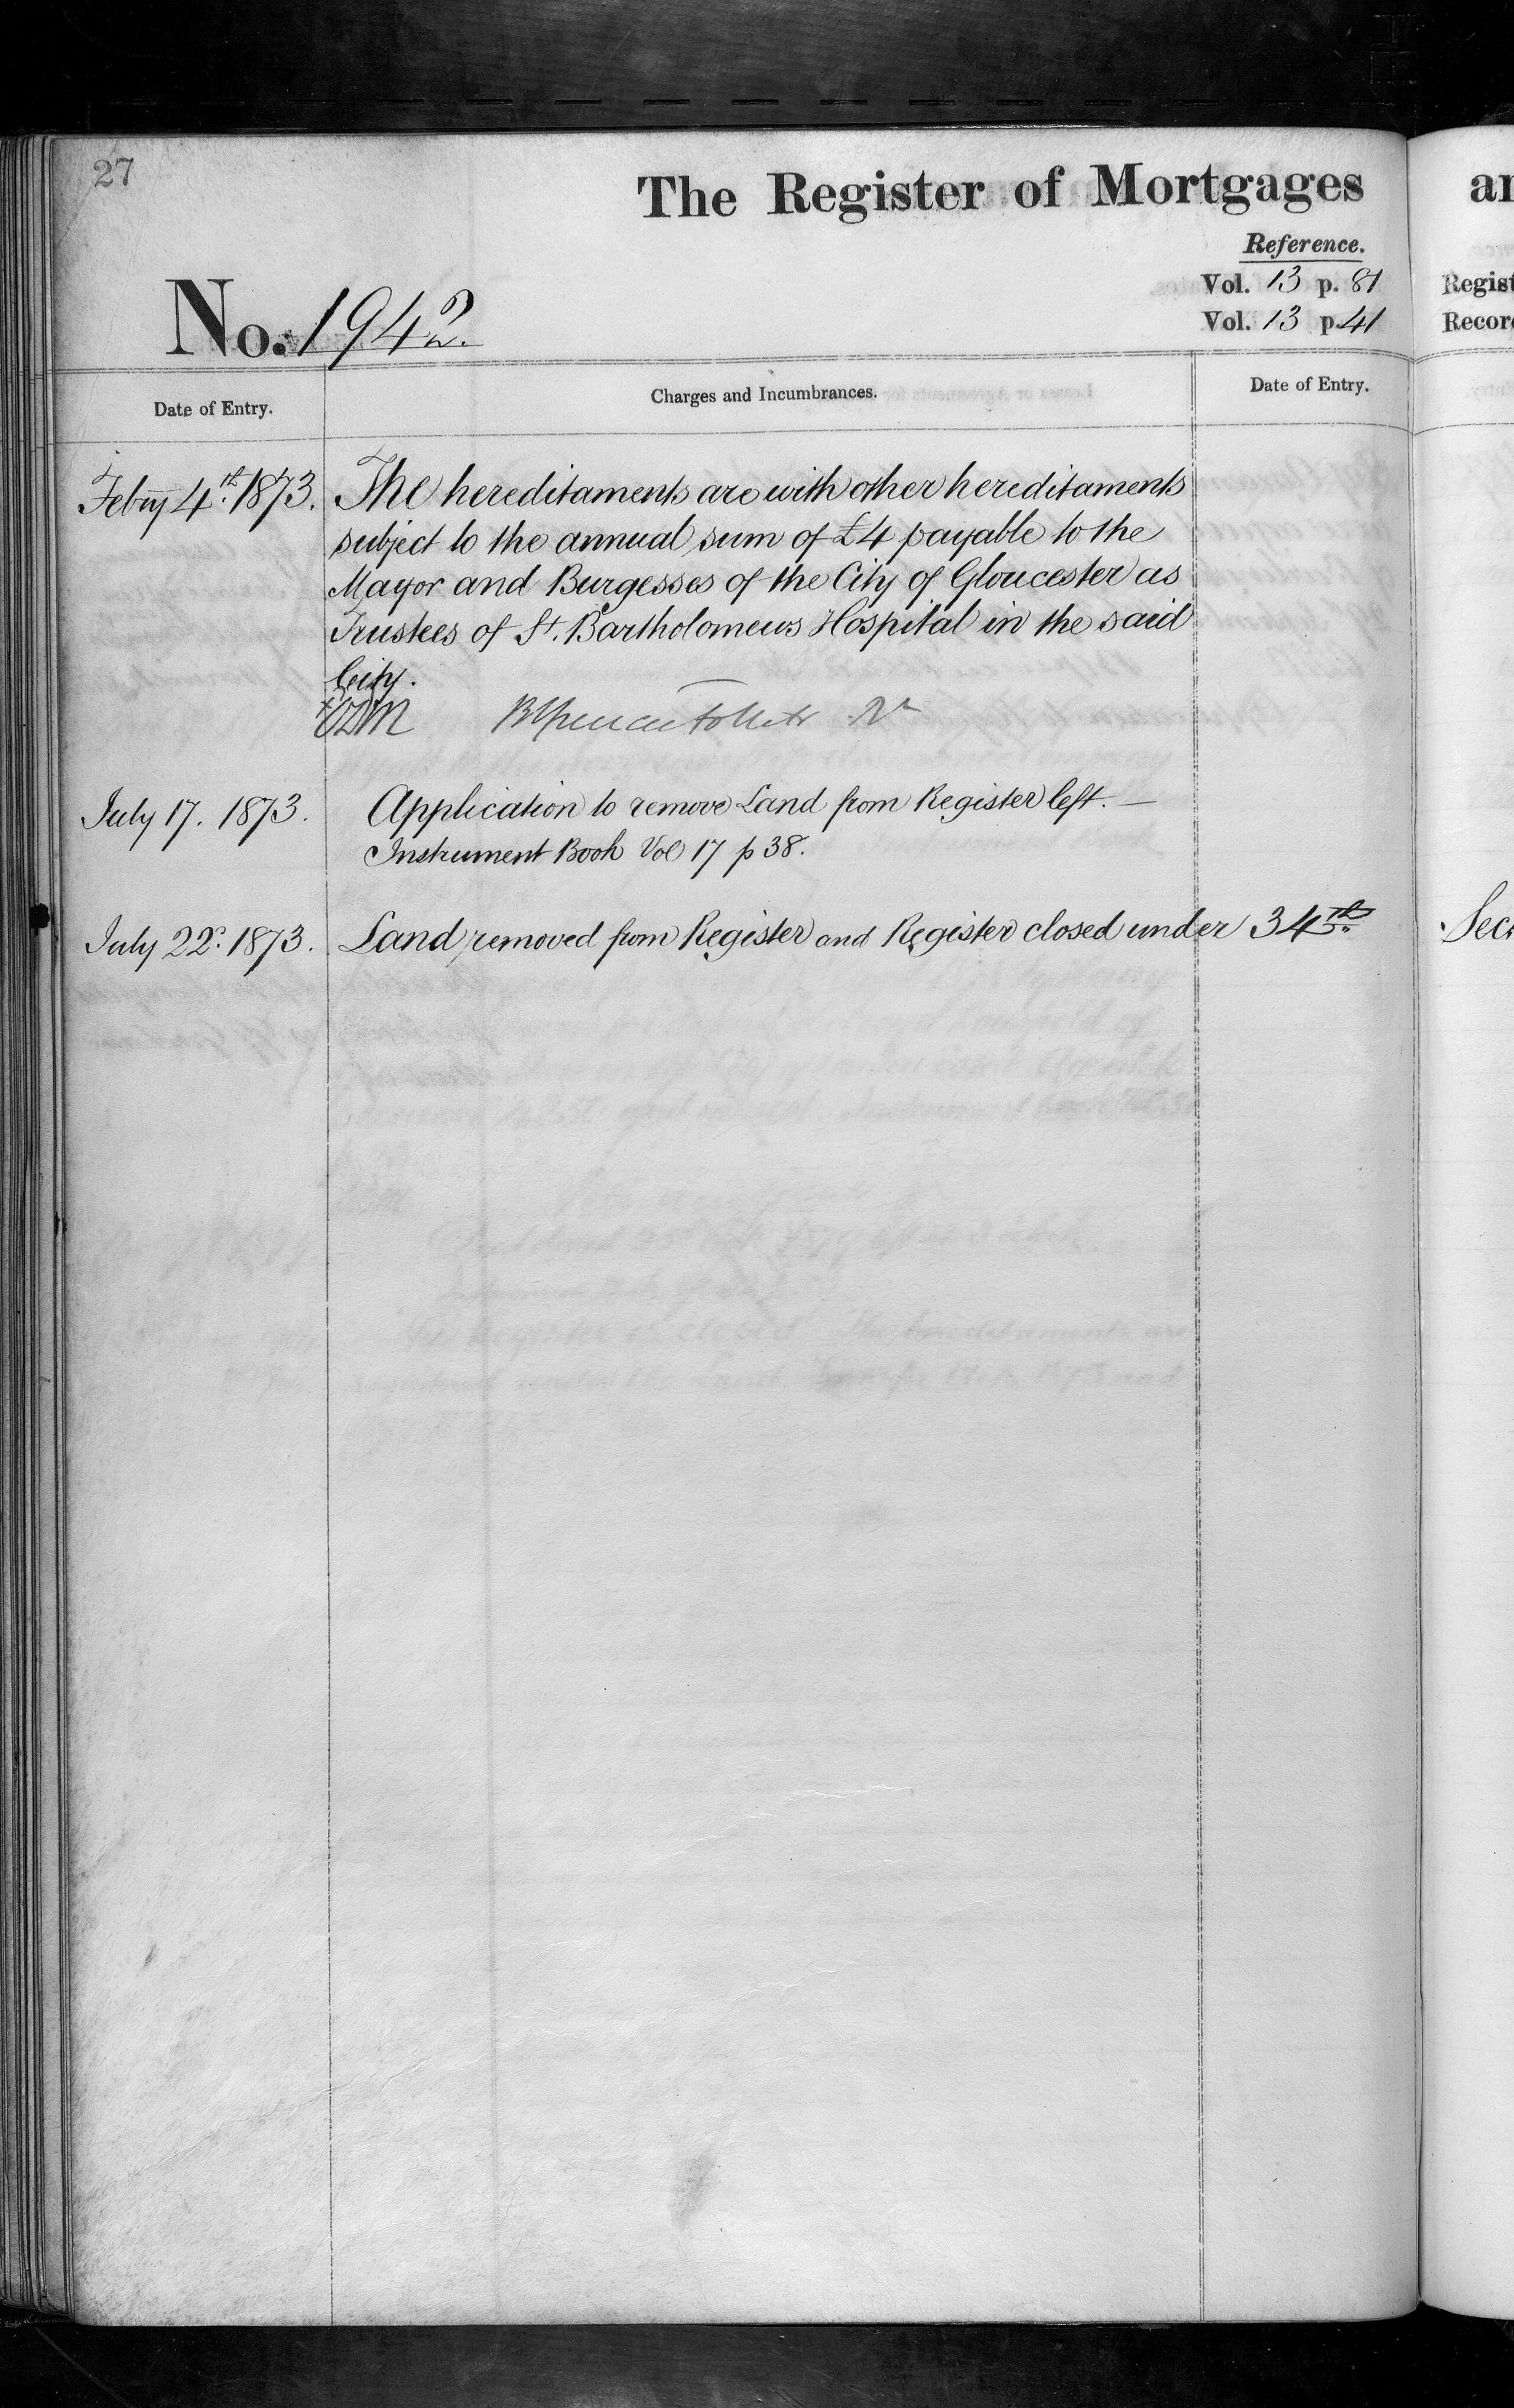 27
The Register of Mortgages
Reference.
Vol. 13 p. 81
Vol. 13 p. 41
No. 1942.
Date of Entry.
Charges and Incumbrances.
Date of Entry.
Feby 4th. 1873.
The hereditaments are with other hereditaments
subject to the annual sum of £4 payable to the
Mayor and Burgesses of the City of Gloucester as
Trustees of St. Bartholomews Hospital in the said
City.
July 17. 1873.
Application to remove Land from Register left. —
Instrument Book Vol 17 p 38.
July 22. 1873.
Land removed from Register and Register closed under 34th.
Regist
Record